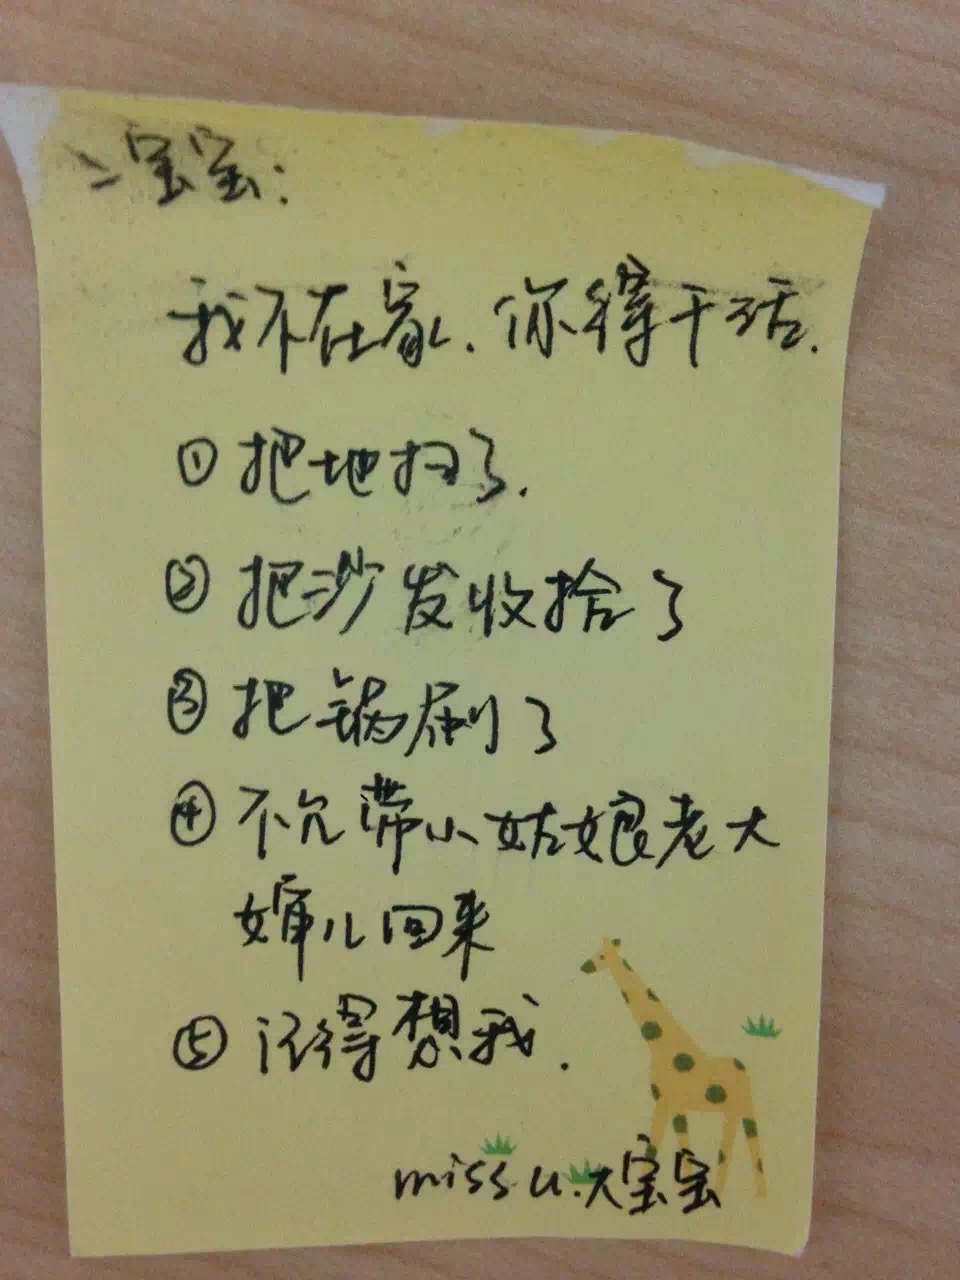 二宝宝:
我不在家.你得干活.
①把地扫了.
②把沙发收拾了
③把锅刷了
④不允带小姑娘老大
婶儿回来
⑤记得想我.
miss u.大宝宝